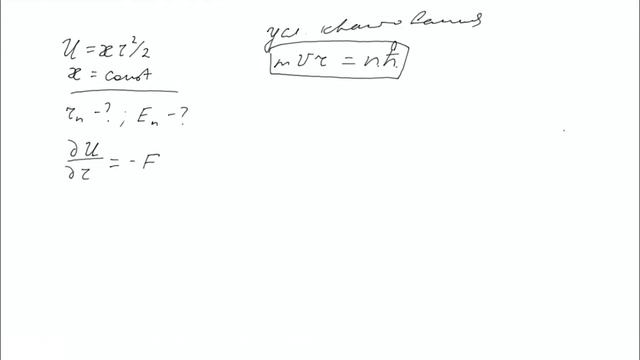 U = æ r²/2
æ = const
rₙ - ? ; Eₙ - ?
∂U/∂r = - F
усл квантования
m v r = n ħ